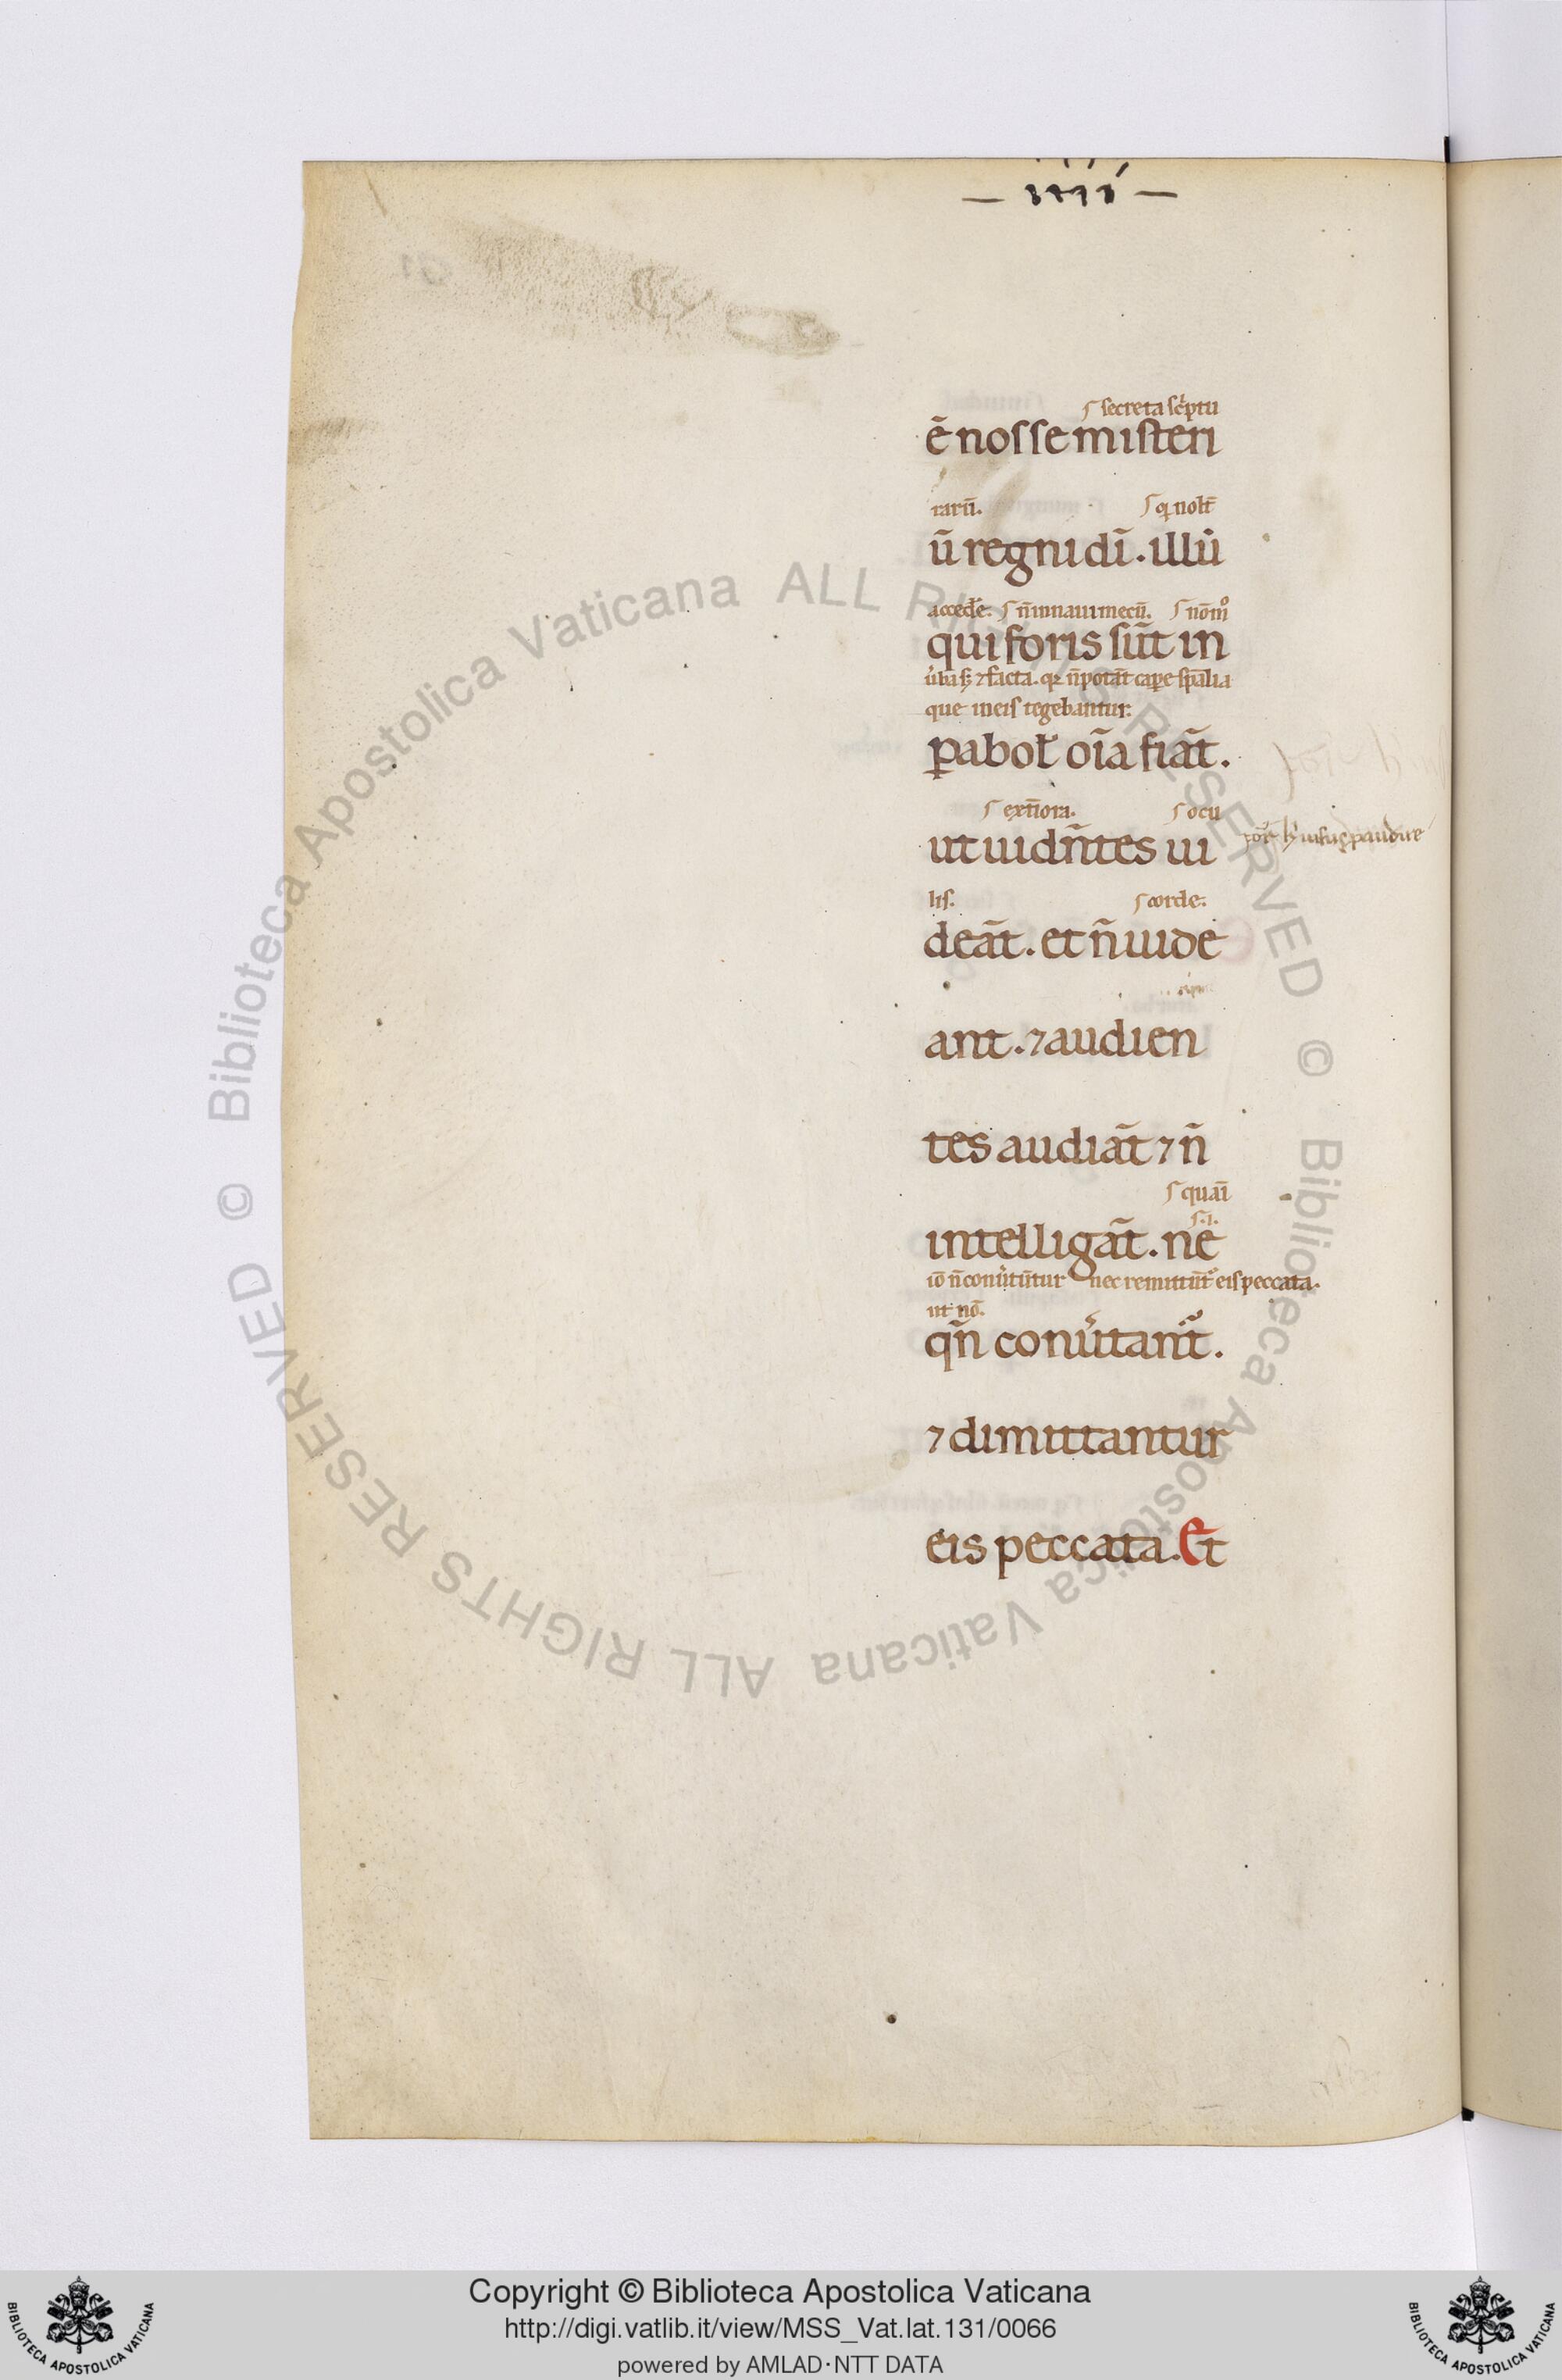 — iiii —
secreta sc̄ptu
ē nosse misteri
rarū. q̨ nolt̄
ū regni dī. illis̄
accede͛. n̄ innaui mecū. nōm̊
qui foris sūt in
u͛bis s; ⁊ facta. qr n̄ potāt cap̲e sp̄alia
que in eis tegebantur.
p̲abol̄ oīa fiāt.
ext̄iora. ocu
ut uidn̄tes ui
lis. corde.
deāt. et n̄ uide
ant. ⁊ audien
tes audiāt ⁊ n̄
quaī
s̄.i.
intelligāt. ne
iō n̄ conu͛tūtur nec remittūt᷑ eis peccata.
ut nō.
qn̄ conu͛tant᷑.
⁊ dimittantur
eis peccata. Et
© Biblioteca Apostolica Vaticana ALL RIGHTS RESERVED © Biblioteca Apostolica Vaticana ALL RIGHTS RESERVED
Copyright © Biblioteca Apostolica Vaticana
http://digi.vatlib.it/view/MSS_Vat.lat.131/0066
powered by AMLAD·NTT DATA
BIBLIOTECA APOSTOLICA VATICANA
BIBLIOTECA APOSTOLICA VATICANA